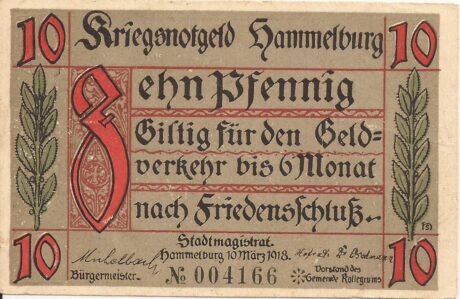 10 Kriegsnotgeld Hammelburg 10
Zehn Pfennig
Giltig für den Geld=
verkehr bis 6 Monat
nach Friedensschluß.
Stadtmagistrat.
10 Hammelburg 10 März 1918. 10
Bürgermeister. No 004166 Vorstand des
Gemeinde Kollegiums